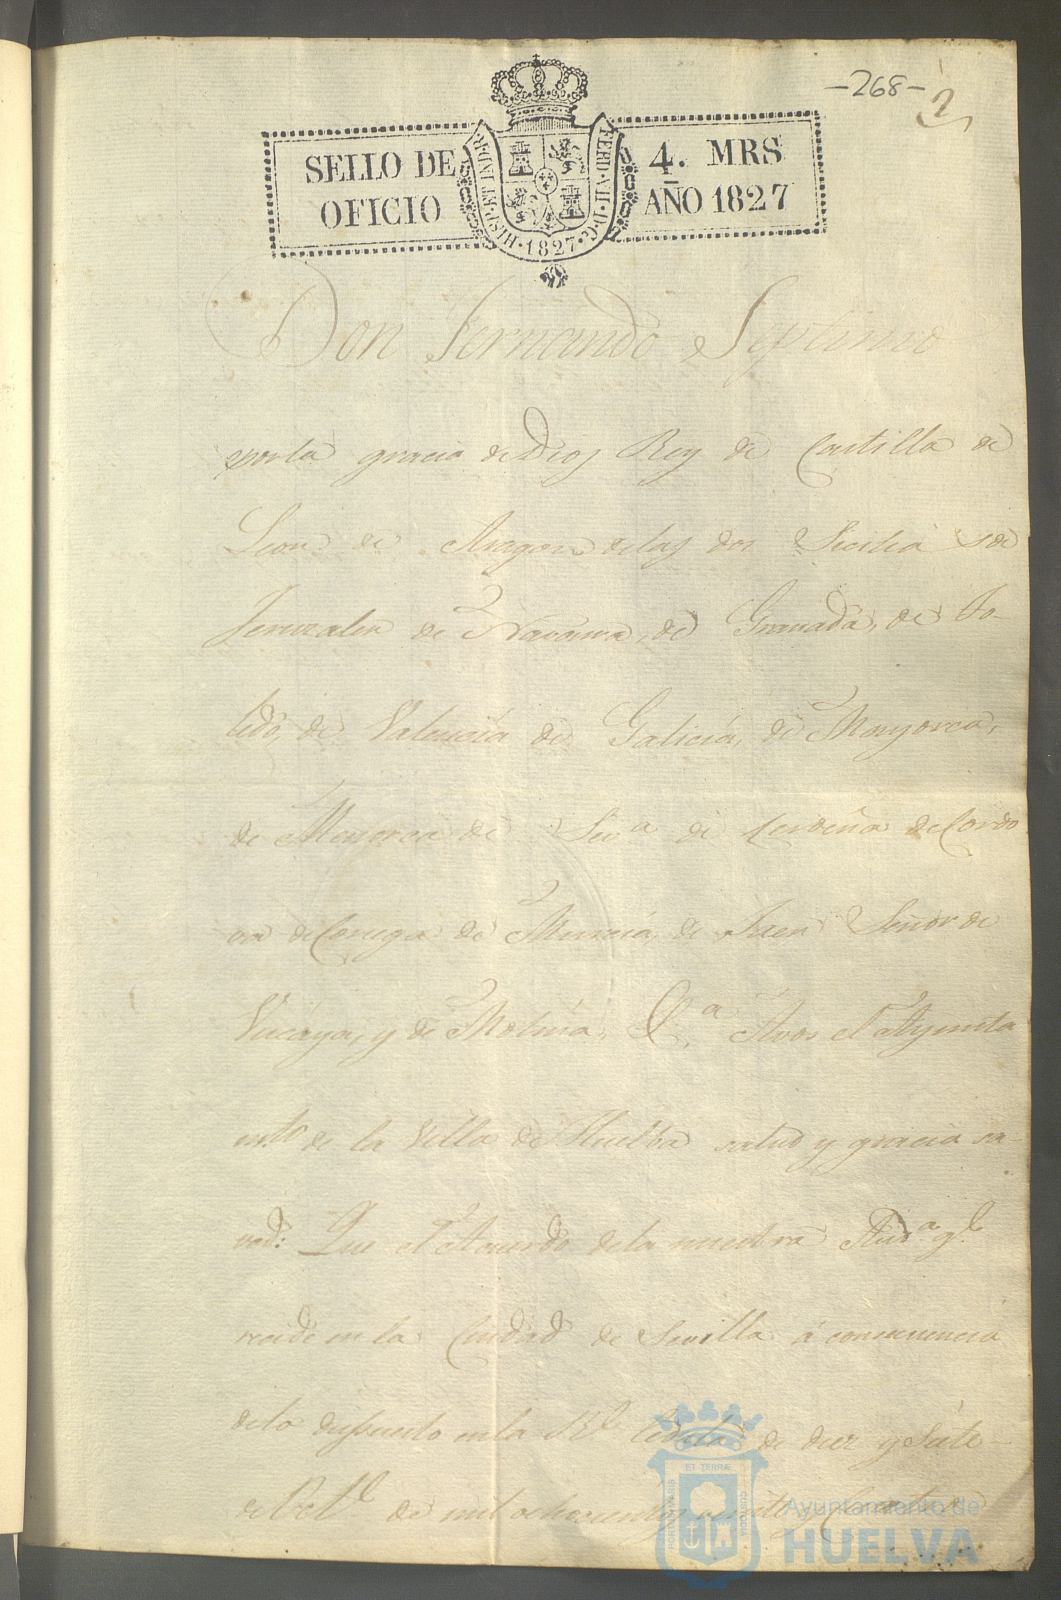 -268-
2
SELLO DE
OFICIO
HISP. ET IND. R.
FERD. VII. D. G.
1827
4. MRS
AÑO 1827
Don Fernando Septimo
por la gracia de Dios Rey de Castilla de
Leon de Aragon de las dos Sicilias de
Jeruzalen de Navarra, de Granada, de To-
ledo, de Valencia de Galicia, de Mayorca,
de Menorca de Sev.a de Cerdeña de Cordo
va de Corcega de Murcia, de Jaen Señor de
Vizcaya, y de Molina, &.a A vos el Ayunta
mto de la Villa de Huelba salud y gracia sa-
ved: Que el Acuerdo de la nuestra Aud.a q.e
recide en la Ciudad de Sevilla á consecuencia
de lo dispuesto en la R.l Cedula de diez y siete
de Oct.e de mil ochocientos veinte y Cuatro
ET TERRAE
PORTUS MARIS
CUSTODIA
Ayuntamiento de
HUELVA